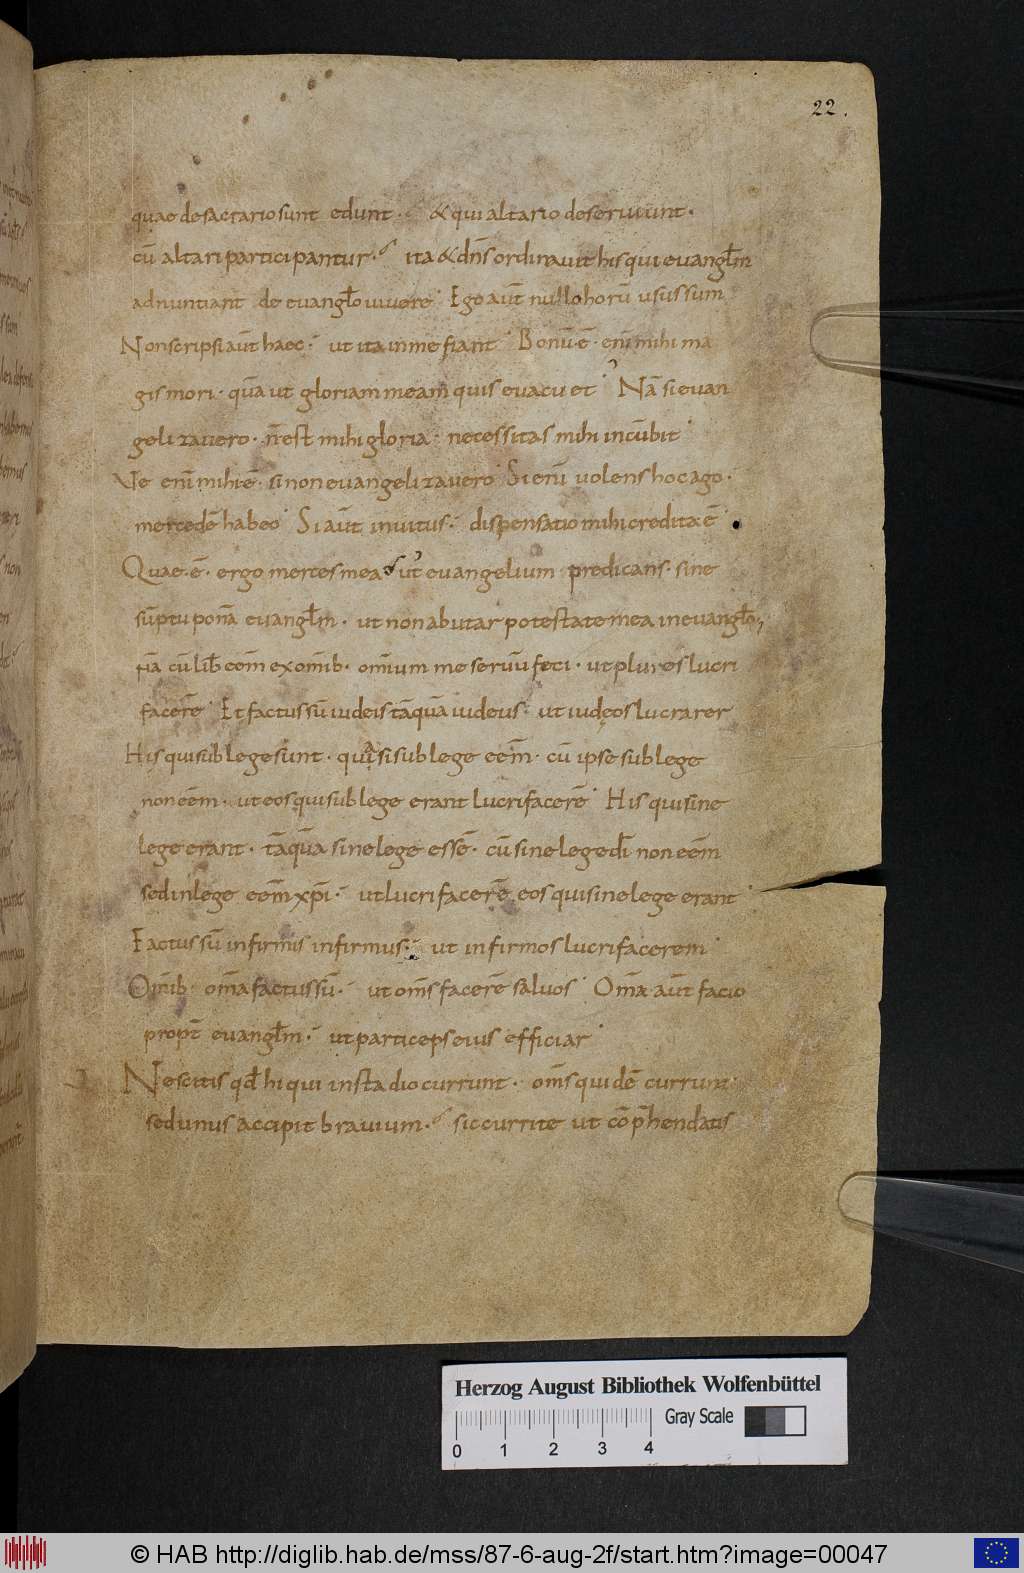 22.
quae de sacrario sunt edunt. & qui altario deseruiunt.
cū altari participantur. ita & dn̄s ordinauit his qui euangłm
adnuntiant de euangło uiuere. Ego aūt nullo horū usus sum
Non scripsi aūt haec. ut ita in me fiant. Bonū ē. enī mihi ma
gis mori. quā ut gloriam meam quis euacuet. Nā si euan
gelizauero. n̄ est mihi gloria. necessitas mihi incūbit.
Ve enī mihi ē. si non euangelizauero. Si enī uolens hoc ago.
mercedē habeo. Si aūt inuitus. dispensatio mihi credita ē.
Quae. ē. ergo merces mea ut euangelium predicans. sine
sūptu ponā euangłm. ut non abutar potestate mea in euangło,
nā cū lib̄ eēm ex omīb. omīum me seruū feci. ut plures lucri
facerē. Et factus sū iudeis tāquā iudeus. ut iudęos lucrarer
His qui sub lege sunt. quasi sub lege eēm. cū ipse sub lege
non eēm. ut eos qui sub lege erant lucri facerē. His qui sine
lege erant. tāquā sine lege essē. cū sine lege dī non eēm
sed in lege eēm xp̄i. ut lucri facerē eos qui sine lege erant.
Factus sū infirmis infirmus. ut infirmos lucri facerem.
Omīb. om̄a factus sū. ut om̄s facerē saluos. Om̄a aūt facio
propt̄ euangłm. ut particeps eius efficiar.
Nescitis qđ hi qui in stadio currunt. om̄s quidē currunt.
sed unus accipit brauium. sic currite ut cōp̄hendatis
Herzog August Bibliothek Wolfenbüttel
Gray Scale
0 1 2 3 4
© HAB http://diglib.hab.de/mss/87-6-aug-2f/start.htm?image=00047